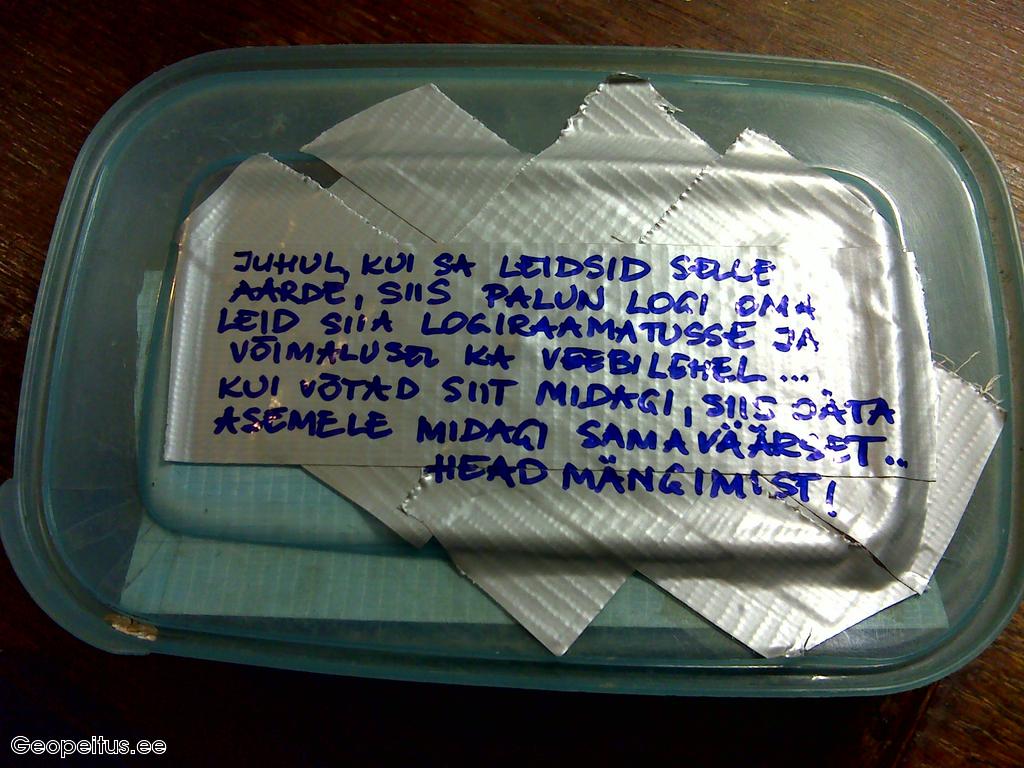 JUHUL, KUI SA LEIDSID SELLE
AARDE, SIIS PALUN LOGI OMA
LEID SIIA LOGIRAAMATUSSE JA
VÕIMALUSEL KA VEEBILEHEL...
KUI VÕTAD SIIT MIDAGI, SIIS JÄTA
ASEMELE MIDAGI SAMAVÄÄRSET...
HEAD MÄNGIMIST!
Geopeitus.ee